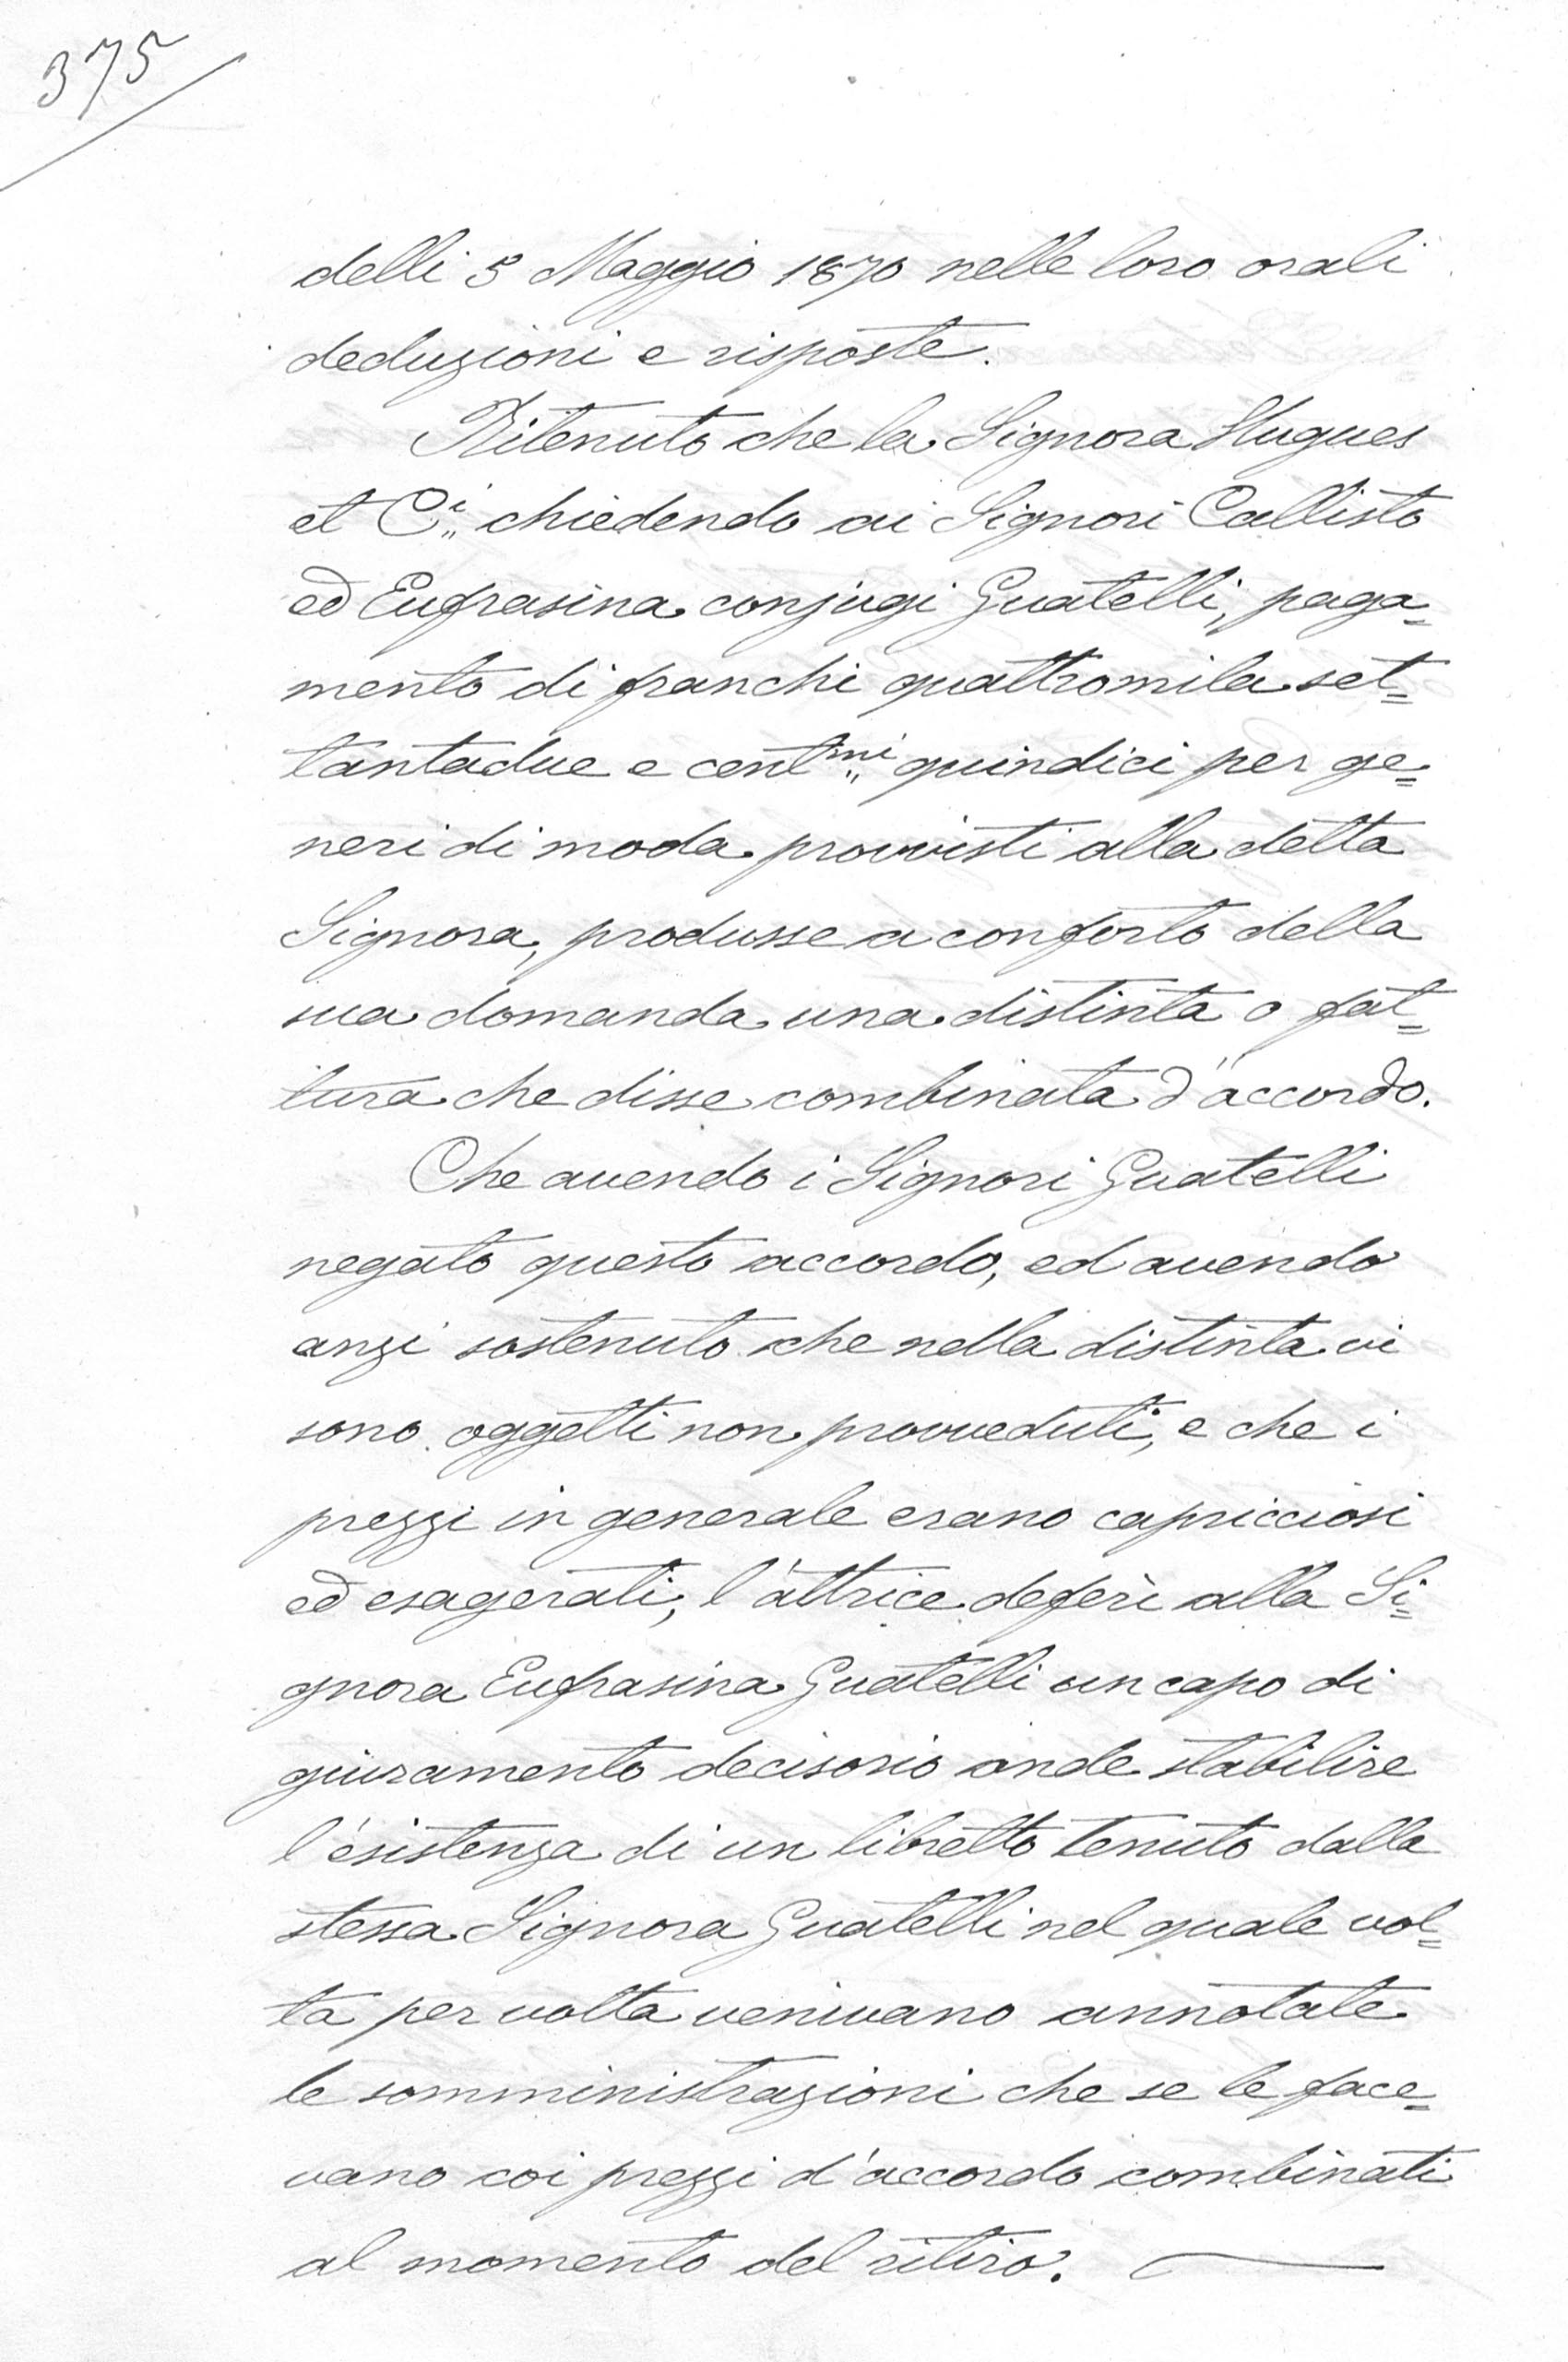 375
delli 5 Maggio 1870 nelle loro orali
deduzioni e risposte.
Ritenuto che la Signora Hugues
et C.i chiedendo ai Signori Callisto
ed Eufrasina conjugi Guatelli, paga=
mento di franchi quattromila set=
tantadue e cent.mi quindici per ge=
neri di moda provvisti alla detta
Signora, produsse a conforto della
sua domanda una distinta o fat=
tura che disse combinata d'accordo.
Che avendo i Signori Guatelli
negato questo accordo, ed avendo
anzi sostenuto che nella distinta vi
sono oggetti non provveduti, e che i
prezzi in generale erano capricciosi
ed esagerati, l'attrice deferì alla Si=
gnora Eufrasina Guatelli un capo di
giuramento decisorio onde stabilire
l'esistenza di un libretto tenuto dalla
stessa Signora Guatelli nel quale vol=
ta per volta venivano annotate
le somministrazioni che se le face=
vano coi prezzi d'accordo combinati
al momento del ritiro.